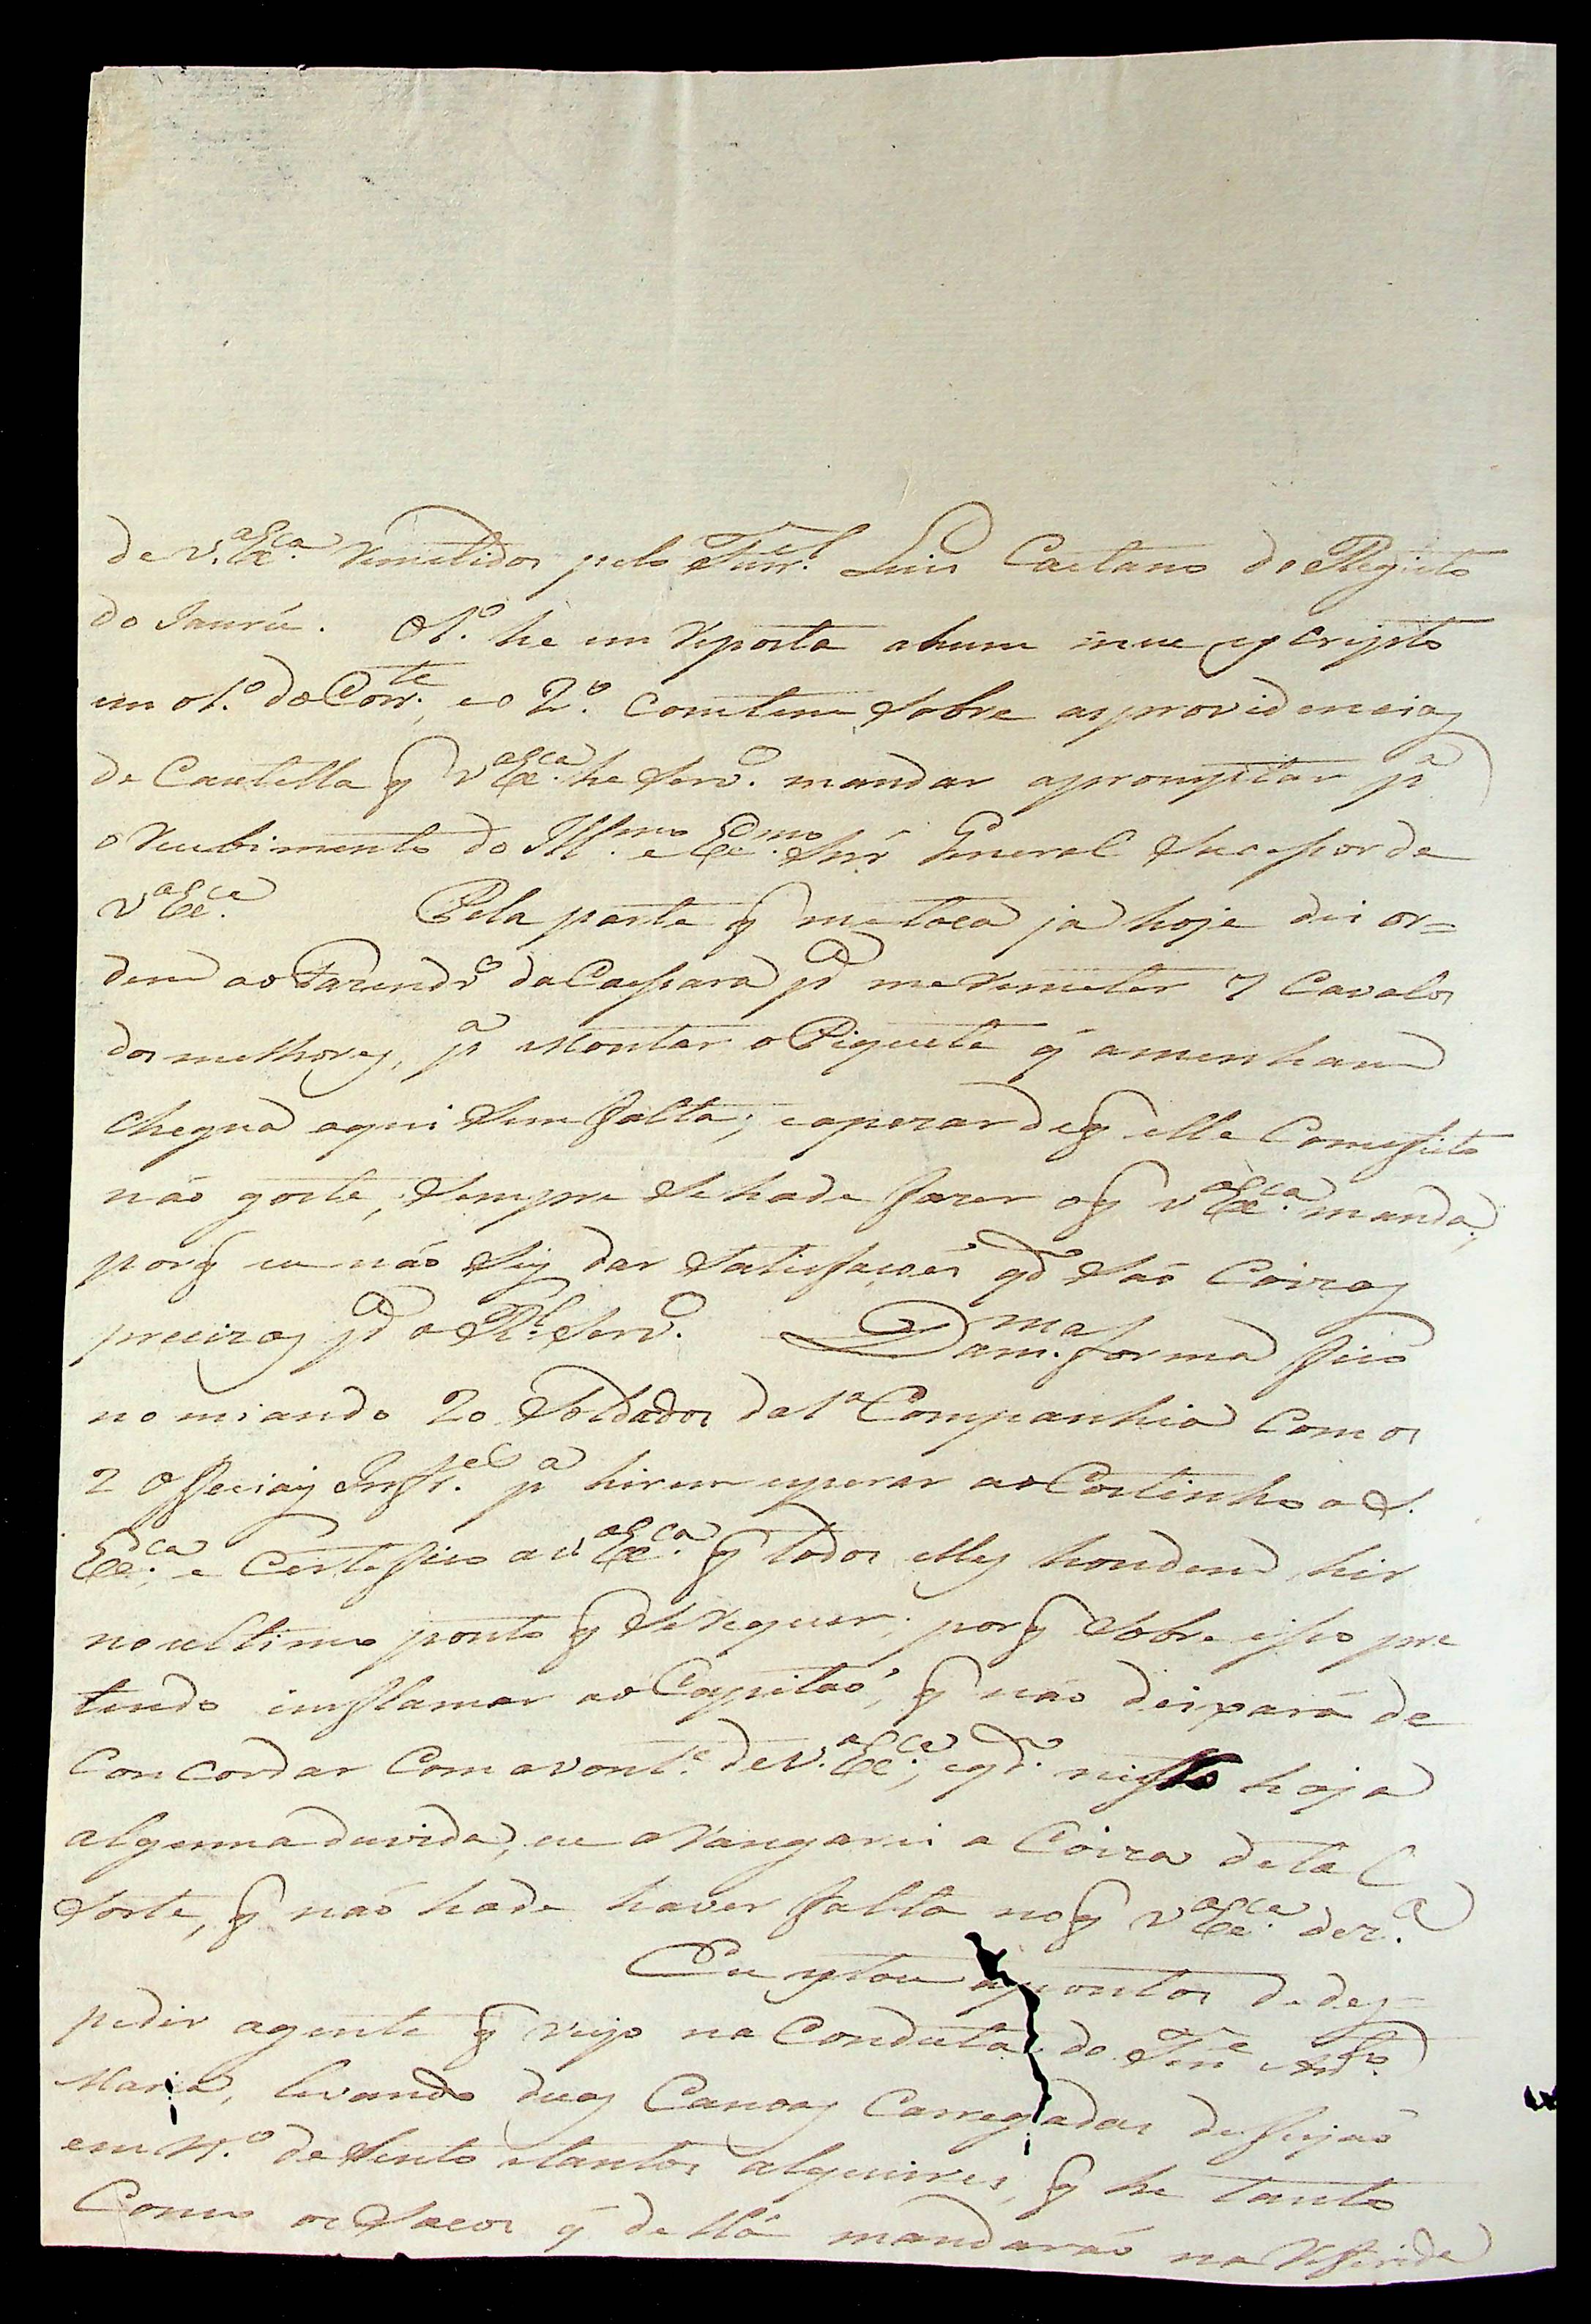 de V.ª Ex.ca remetidos pelo Furr.el Luis Caetano do Registo
do Jaurú. O 1.º he em reposta a hum meu escripto
em o 1.º do Corr.te, e o 2.º contem sobre as providencias
de Cautella q̃ V.ª Ex.ca he serv.º mandar apromptar p.ª
o recebimento do Ill.mo e Ex.mo Snr̃ General Sucessor de
V.ª Ex.ca Pela parte q̃ me toca ja hoje dei or=
dem ao Fazendr.º da Caessara p.ª me remeter 7 Cavalos
dos melhores, p.ª Montar o Piquete q̃ amenham
chegua aqui sem falta; e apezar de q̃ elle Com efeito
não goste, sempre se hade fazer o q̃ V.ª Ex.ca manda;
porq̃ eu não sey dar satisfaçoēs q.do são Coizas
precizas p.ª o R.l Serv.º Dam.ma forma fico
nomiando 20 Soldados da 1.ª Companhia Com os
2 Officiais Inf.es p.ª hirem esperar ao Coxtinho a S.
Ex.ca, e Certefico a V.ª Ex.ca q̃ todos elles hondem hir
no ultimo ponto q̃ se requer; porq̃ sobre isso pre
tendo imflamar ao Capitaõ, q̃ não deixará de
Concordar Com a vont.e de V.ª Ex.ca, e q.do nisto haja
alguma duvida, eu aRangarei a Coiza de tal
sorte, q̃ não hade haver falta no q̃ V.ª Ex.ca dez.ª
Eu estou a pontos de des=
pedir a gente q̃ veyo na Conduta do Ten.e Ant.º
Maria, levando duas Canoas Carregadas de feijaõ
em N.º de sento e tantos alqueires, q̃ he tanto
Como os sacos q̃ de llá mandaraõ na referida